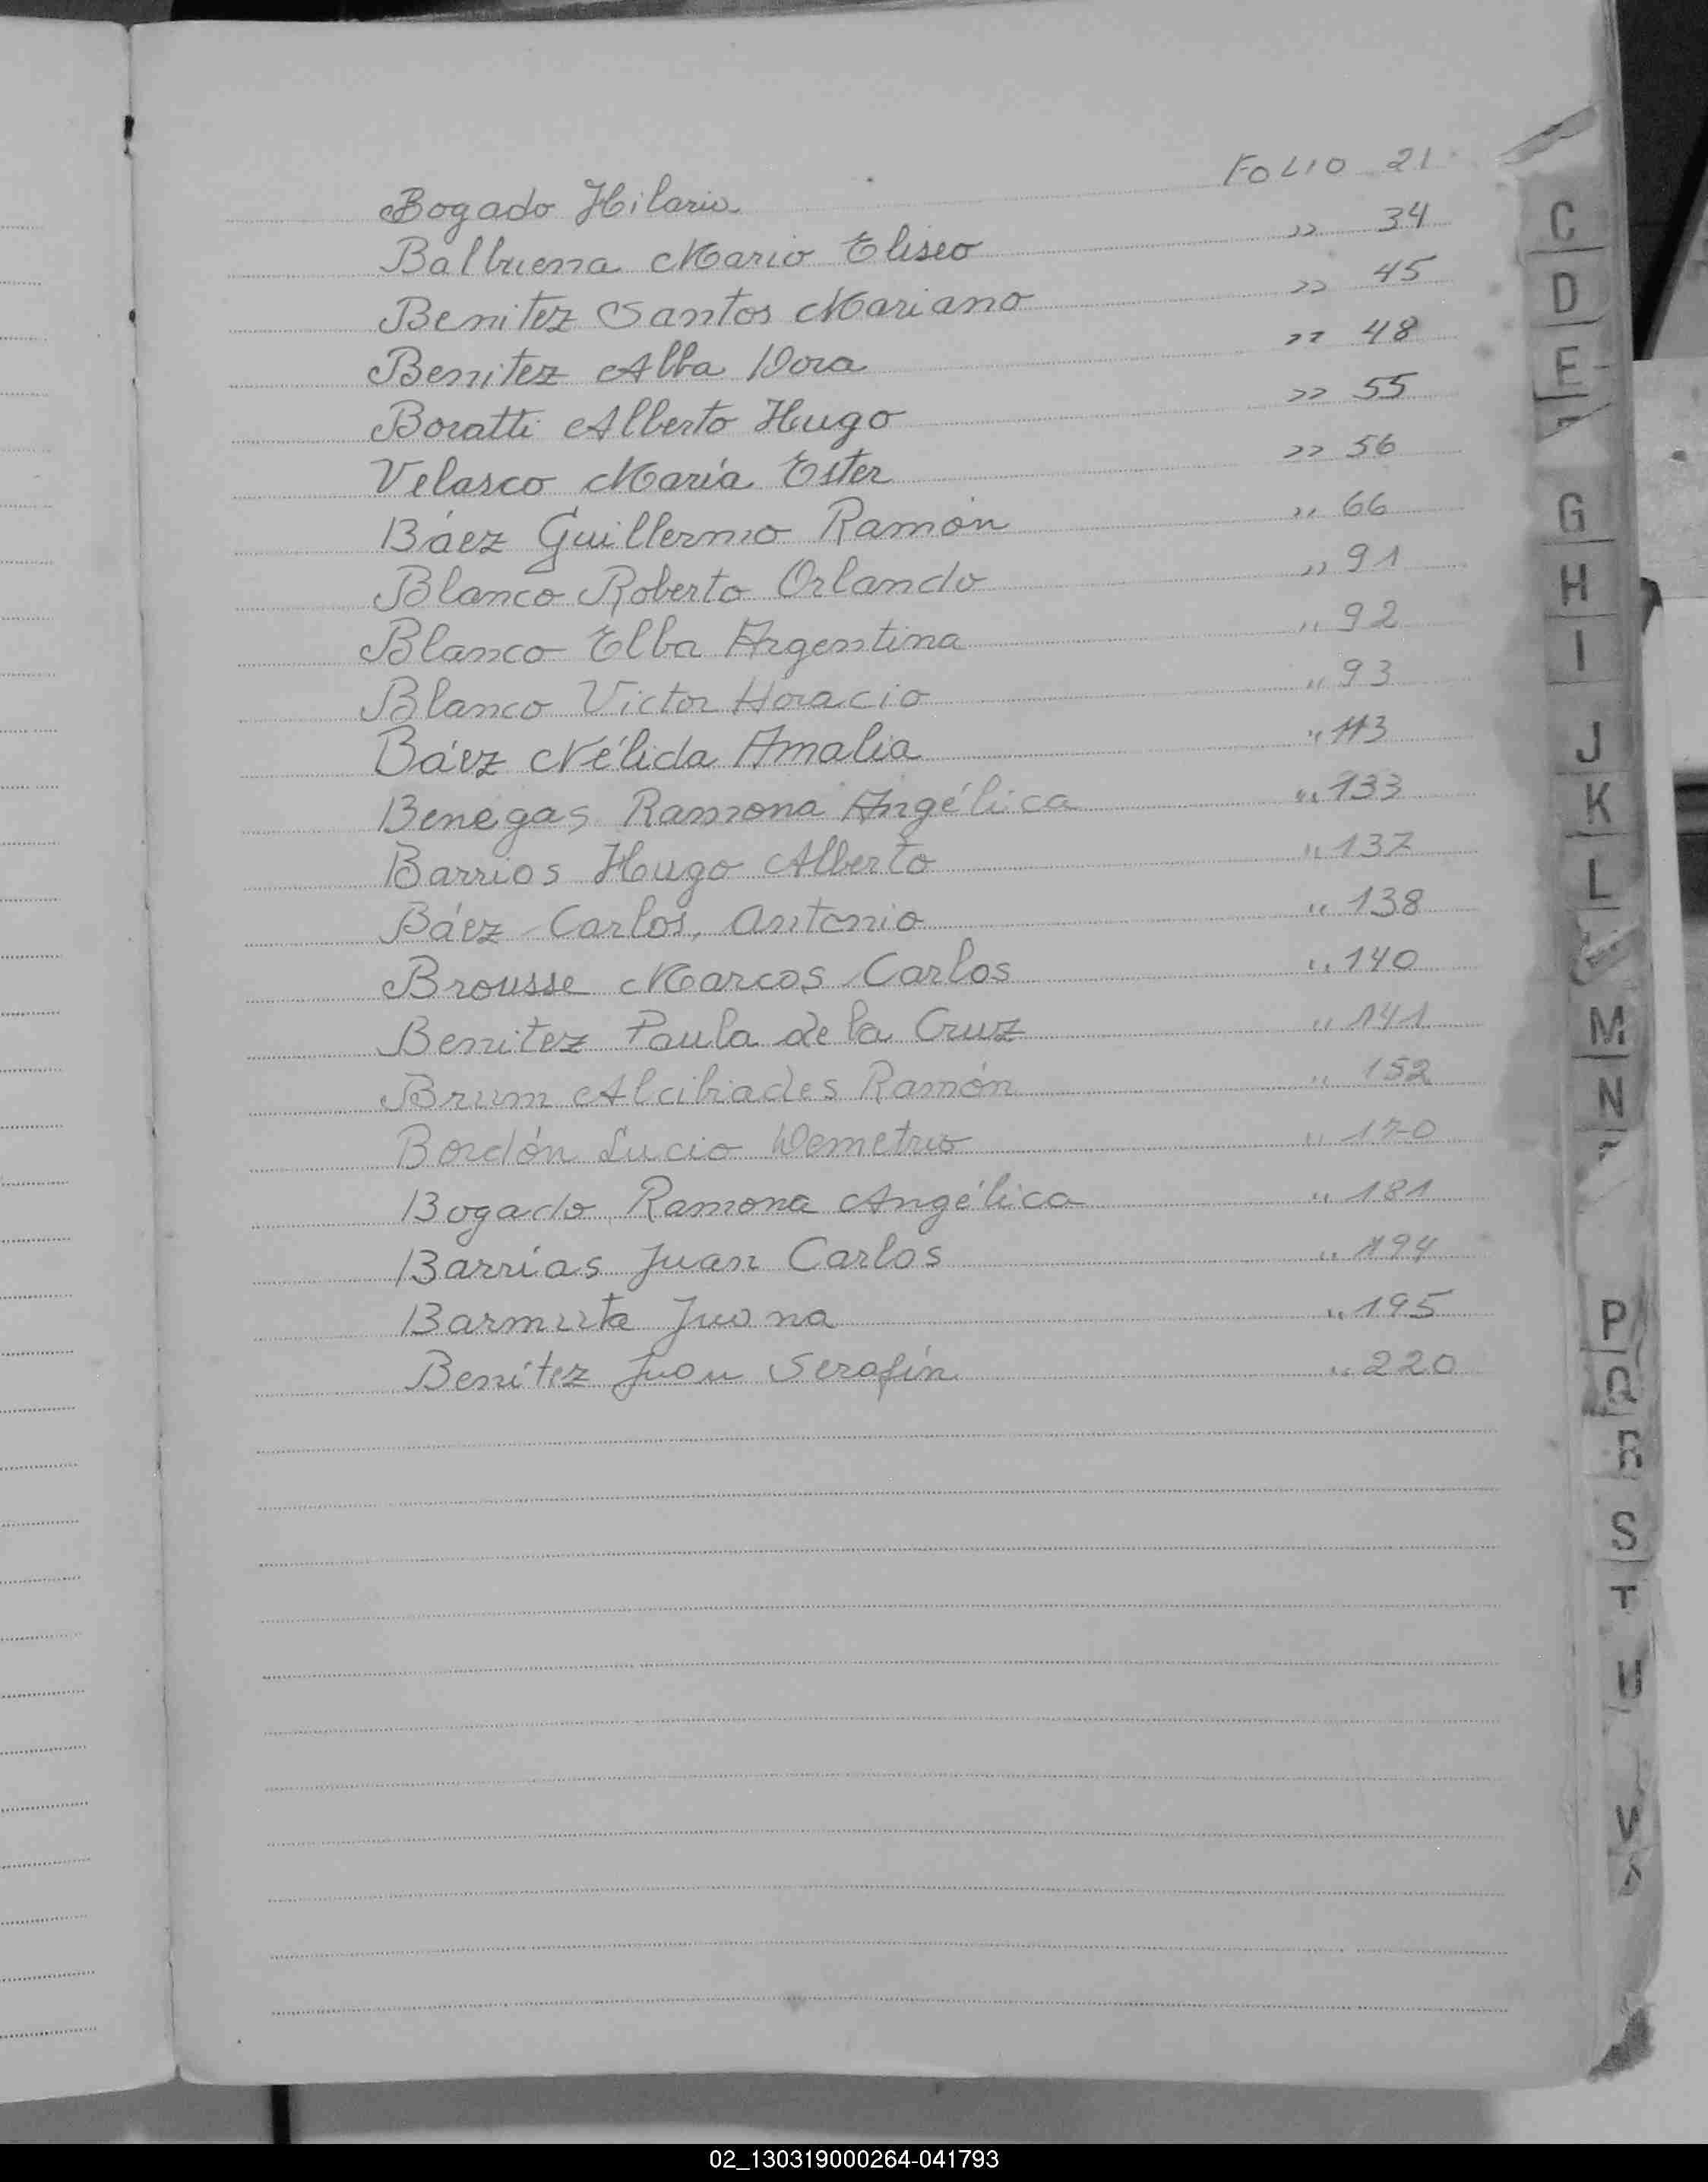 Bogado Hilario FOLIO 21
Balbuena Mario Eliseo " 34
Benitez Santos Mariano " 45
Benitez Alba Dora " 48
Boratti Alberto Hugo " 55
Velasco María Ester " 56
Báez Guillermo Ramón " 66
Blanco Roberto Orlando " 91
Blanco Elba Argentina " 92
Blanco Victor Horacio " 93
Báez Nélida Amalia " 113
Benegas Ramona Angélica " 133
Barrios Hugo Alberto " 137
Báez Carlos, Antonio " 138
Brousse Marcos Carlos " 140
Benitez Paula de la Cruz " 141
Brum Alcibiades Ramón " 152
Bordón Lucio Demetrio " 170
Bogado Ramona Angélica " 181
Barrias Juan Carlos " 194
Juana " 195
Benítez Juan Serafín " 220
C
D
E
G
H
I
J
K
L
M
N
P
Q
R
S
T
U
V
02_130319000264-041793